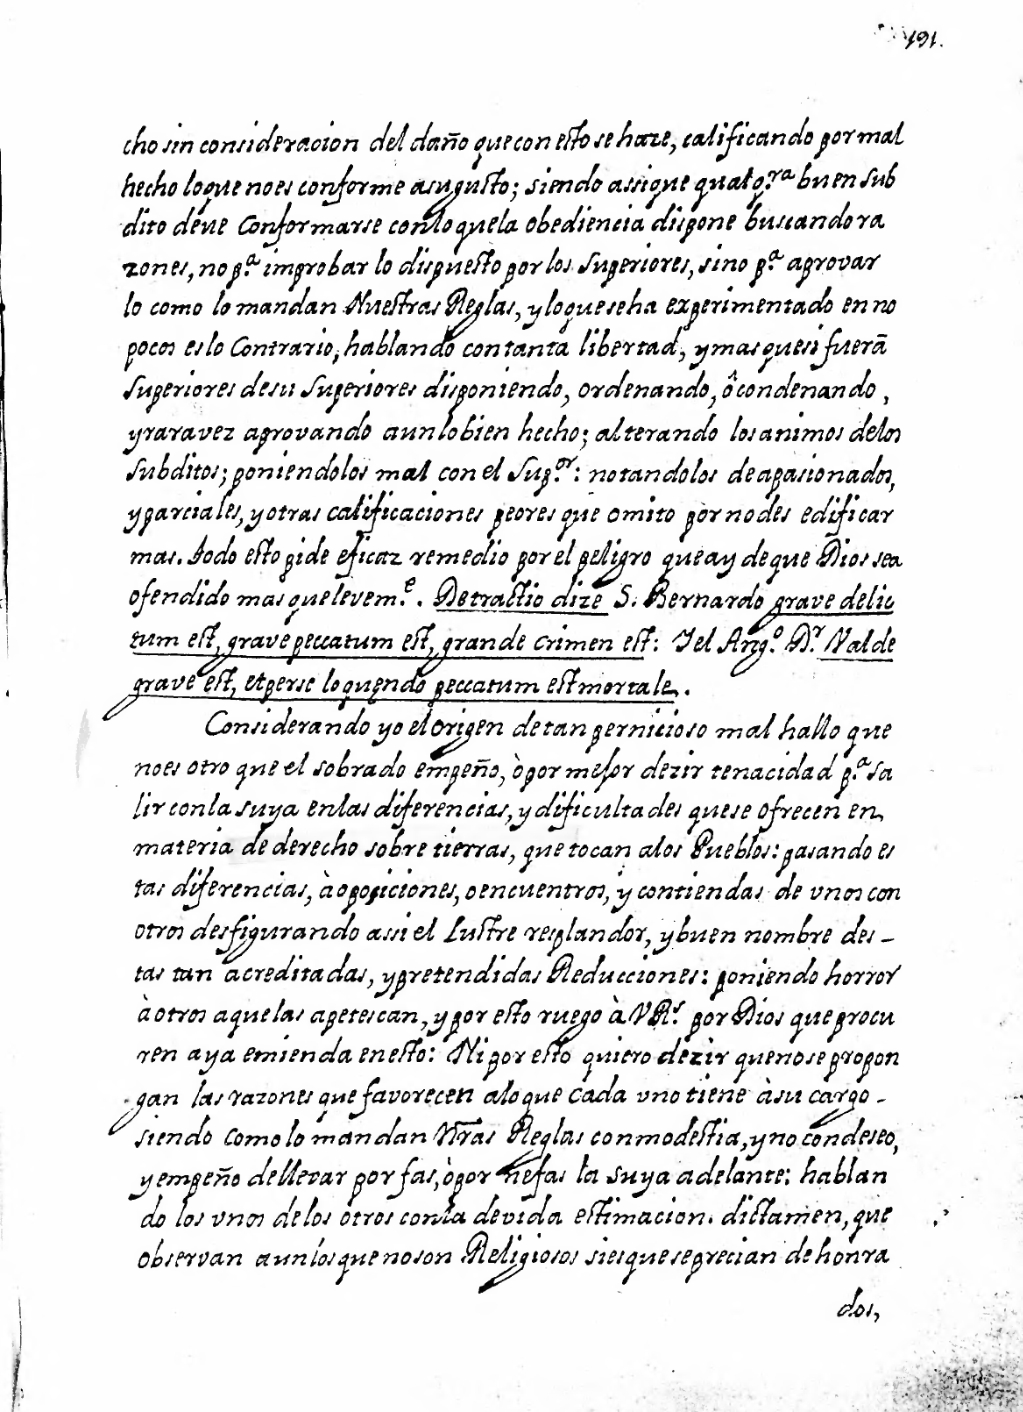 191.
cho sin consideracion del daño que con esto se haze, calificando por mal
hecho lo que no es conforme a su gusto; siendo assi que qualq.ra buen sub
dito deve Conformarse con lo que la obediencia dispone buscando ra
zones, no p.a improbar lo dispuesto por los Superiores, sino p.a aprovar
lo como lo mandan Nuestras Reglas, y lo que se ha experimentado en no
pocos es lo Contrario, hablando con tanta libertad, y mas que si fuerã
Superiores de su Superiores disponiendo, ordenando, ô condenando,
y rara vez aprovando aun lo bien hecho; alterando los animos de los
subditos; poniendolos mal con el Sup.or: notandolos de apasionados,
y parciales, y otras calificaciones peores que omito por no des edificar
mas. Todo esto pide eficaz remedio por el peligro que ay de que Dios sea
ofendido mas que levem.e. Detractio dize S. Bernardo grave delic
tum est, grave peccatum est, grande crimen est: Y el Ang.o D.r Valde
grave est, et per se loquendo peccatum est mortale.
Considerando yo el origen de tan pernicioso mal hallo que
no es otro que el sobrado empeño, ò por mejor dezir tenacidad p.a sa
lir con la suya en las diferencias, y dificultades que se ofrecen en
materia de derecho sobre tierras, que tocan a los Pueblos: pasando es
tas diferencias, à oposiciones, o encuentros, y contiendas de vnos con
otros desfigurando assi el Lustre resplandor, y buen nombre des-
tas tan acreditadas, y pretendidas Reducciones: poniendo horror
à otros a que las apetescan, y por esto ruego à VR.s por Dios que procu
ren aya emienda en esto: Ni por esto quiero dezir que no se propon
gan las razones que favorecen a lo que cada vno tiene à su cargo-
siendo como lo mandan Ntras Reglas con modestia, y no con deseo,
y empeño de llevar por fas, ò por nefas la suya adelante: hablan
do los vnos de los otros con la devida estimacion. dictamen, que
observan aun los que no son Religiosos si es que se precian de honra
dos,